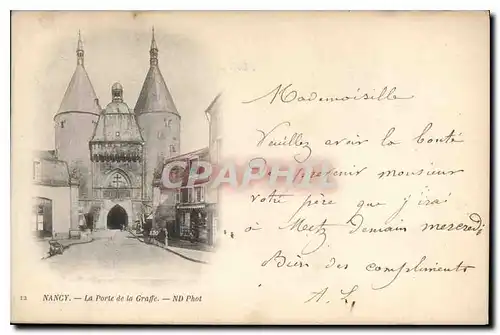 Mademoiselle
Veuillez avoir la bonté
de prévenir monsieur
votre père que j'irai
à Metz demain mercredi
Bien des compliments
A. L.
CPArama
12 NANCY. — La Porte de la Graffe. — ND Phot